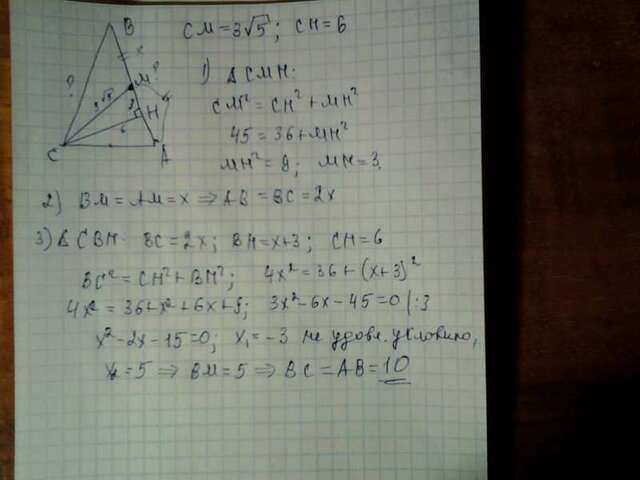 B
CM = 3√5; CH = 6
x
M ?
1) Δ CMH:
?
3√5
3
H
CM² = CH² + MH²
6
45 = 36 + MH²
C
A
MH² = 9; MH = 3.
2) BM = AM = x ⇒ AB = BC = 2x
3) Δ CBH: BC = 2x; BH = x+3; CH = 6
BC² = CH² + BH²; 4x² = 36 + (x+3)²
4x² = 36 + x² + 6x + 9; 3x² - 6x - 45 = 0 | :3
x² - 2x - 15 = 0; x₁ = -3 не удовл. условию,
x₂ = 5 ⇒ BM = 5 ⇒ BC = AB = 10